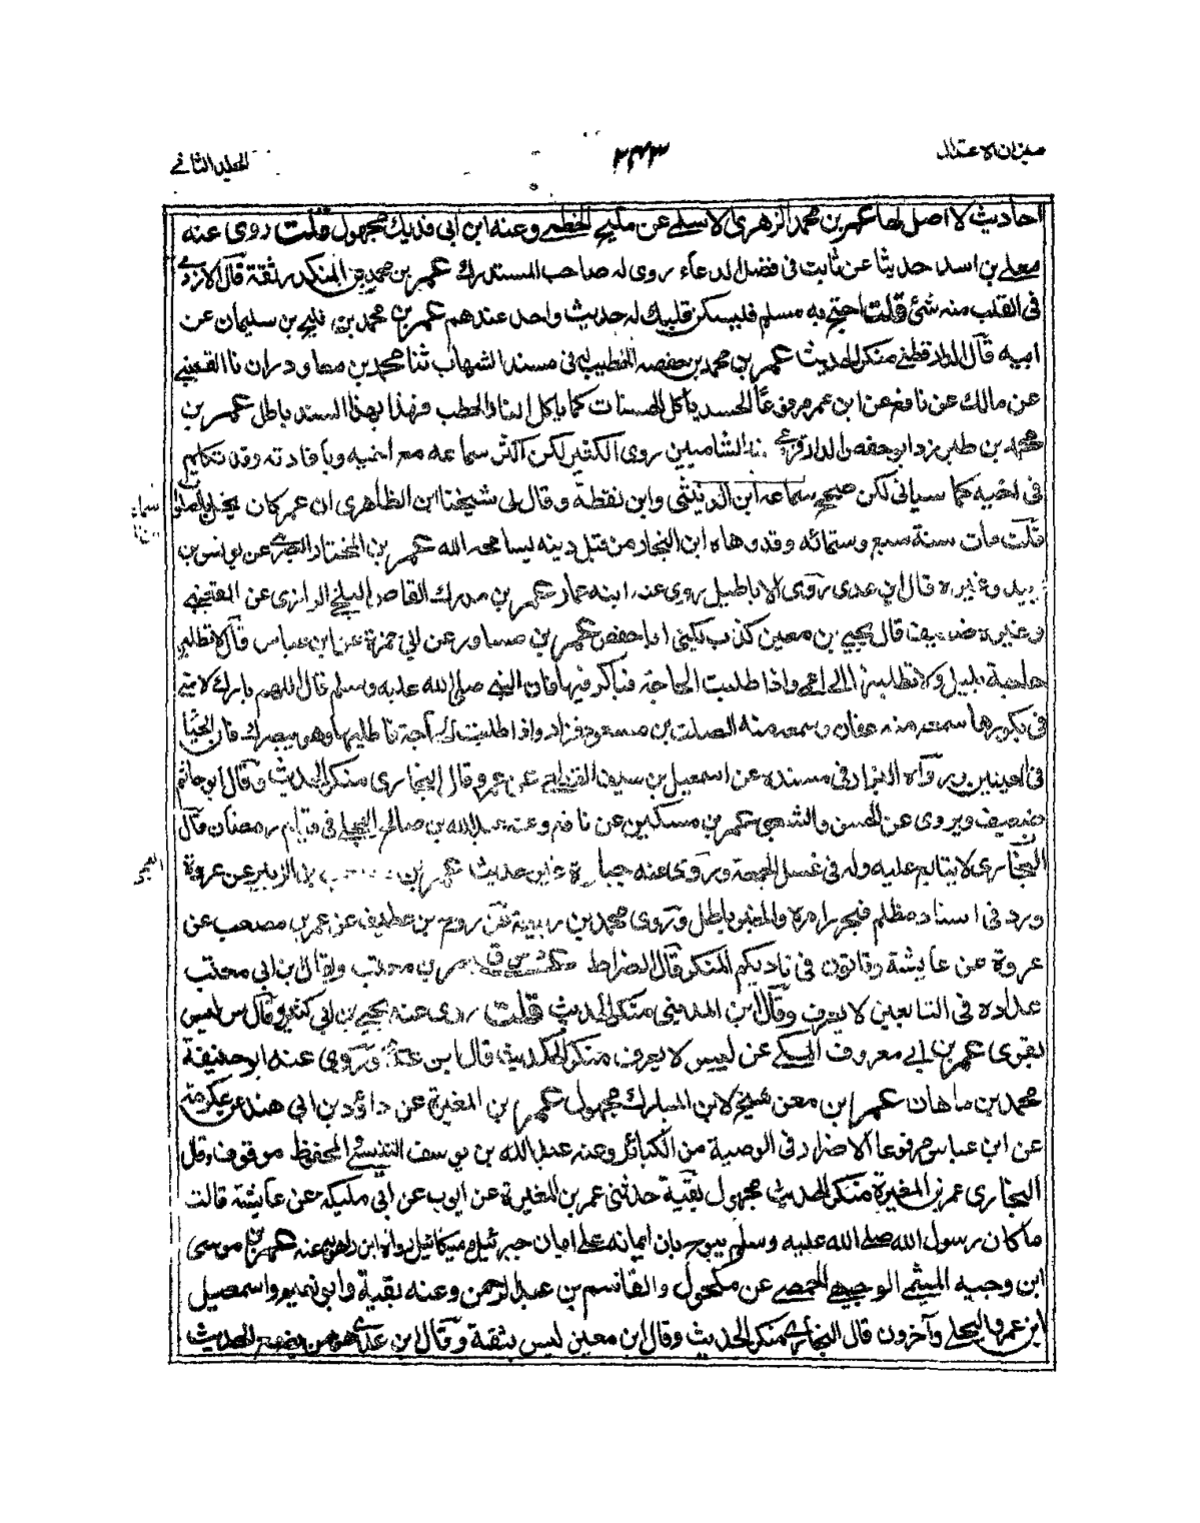 ميزان الاعتدال
٢٤٣
المجلد الثانى
احاديث لا اصل لها عمر بن محمد الزهرى الاسلمى عن مليح الخطمى وعنه ابن ابى فديك مجهول قلت روى عنه
معلى بن اسد حديثا عن ثابت فى فضل الدعاء روى له صاحب المستدرك عمر بن محمد بن المنكدر ثقة قال الازدى
فى القلب منه شئ قلت احتج به مسلم فليسكن قلبك له حديث واحد عندهم عمر بن محمد بن فليح بن سليمان عن
ابيه قال الدارقطنى منكر الحديث عمر بن محمد بن حفصه الخطيب له فى مسند الشهاب ثنا محمد بن معاو دران نا القعنبى
عن مالك عن نافع عن ابن عمر مرفوعا الحسد ياكل الحسنات كما ياكل النار الحطب فهذا بهذا السند باطل عمر بن
محمد بن طبرزد ابو حفص الدارقزى الشاميين روى الكثير لكن اكثر سماعه مع اخيه وبافادته وقد تكلم
فى اخيه كما سياتى لكن صحح سماعه ابن الدبيثى وابن نقطة وقال لى شيخنا ابن الظاهرى ان عمر كان يخل بالصلوا
قلت مات سنة سبع وستمائه وقد وهاه ابن النجار من قبل دينه يسامحه الله عمر بن المختار البصرى عن يونس بن
عبيد وغيره قال ابن عدى روى الاباطيل روى عنه ابنه عمار عمر بن مدرك القاص البلخى الرازى عن القعنبى
وغيره ضعيف قال يحيى بن معين كذب يكنى ابا حفص عمر بن مساور عن ابى حمزة عن ابن عباس قال لا تطلبن
حاجة بليل ولا تطلبنها الى اعمى واذا طلبت الحاجة فباكر فيها فان النبى صلى الله عليه وسلم قال اللهم بارك لامتى
فى بكورها سمعه منه عفان وسمعه منه الصلت بن مسعود فزاد واذا طلبت الحاجة فاطلبها وهو يبصرك فان الحيا
فى العينين ورواه البزار فى مسنده عن اسمعيل بن سيف القزاز عن عمر وقال البخارى منكر الحديث وقال ابو حاتم
ضعيف ويروى عن الحسن والشعبى عمر بن مسكين عن نافع وعنه عبد الله بن صالح العجلى فى قيام رمضان قال
البخارى لا يتابع عليه وله فى غسل الجمعة وروى عنه جبارة غير حديث عمر بن بن الزبير عن عروة
ورد فى اسناد مظلم فيحرر امره والخبر باطل وروى محمد بن ربيعة عن روح بن غطيف عن عمر بن مصعب عن
عروة عن عايشة وتاتون فى ناديكم المنكر قال الضراط عمر بن معتب ويقال بن ابى معتب
عداده فى التابعين لا يعرف وقال ابن المدينى منكر الحديث قلت روى عنه يحيى بن ابى كثير وقال س ليس
بقوى عمر بن ابى معروف المكى عن ليس لا يعرف منكر الحديث قال ابن عدى وروى عنه ابو حنيفة
محمد بن ماهان عمر ابن معن شيخ لابن المبارك مجهول عمر بن المغيرة عن داؤد بن ابى هند عن عكرمة
عن ابن عباس مرفوعا الاضرار فى الوصية من الكبائر وعنه عبد الله بن يوسف التنيسى المحفوظ موقوف وقال
البخارى عمر بن المغيرة منكر الحديث مجهول بقية حدثنى عمر بن المغيرة عن ايوب عن ابى مليكه عن عايشة قالت
ما كان رسول الله صلى الله عليه وسلم يبوح بان ايمانه على ايمان جبرئيل وميكائيل رواه ابن راهويه عنه عمر بن موسى
ابن وجيه الميثمى الوجيهى الحمصى عن مكحول والقاسم بن عبد الرحمن وعنه بقية وابى نعيم واسمعيل
ابن عمرو البجلى وآخرون قال البخارى منكر الحديث وقال ابن معين ليس بثقة وقال ابن عدى هو ممن يضع الحديث